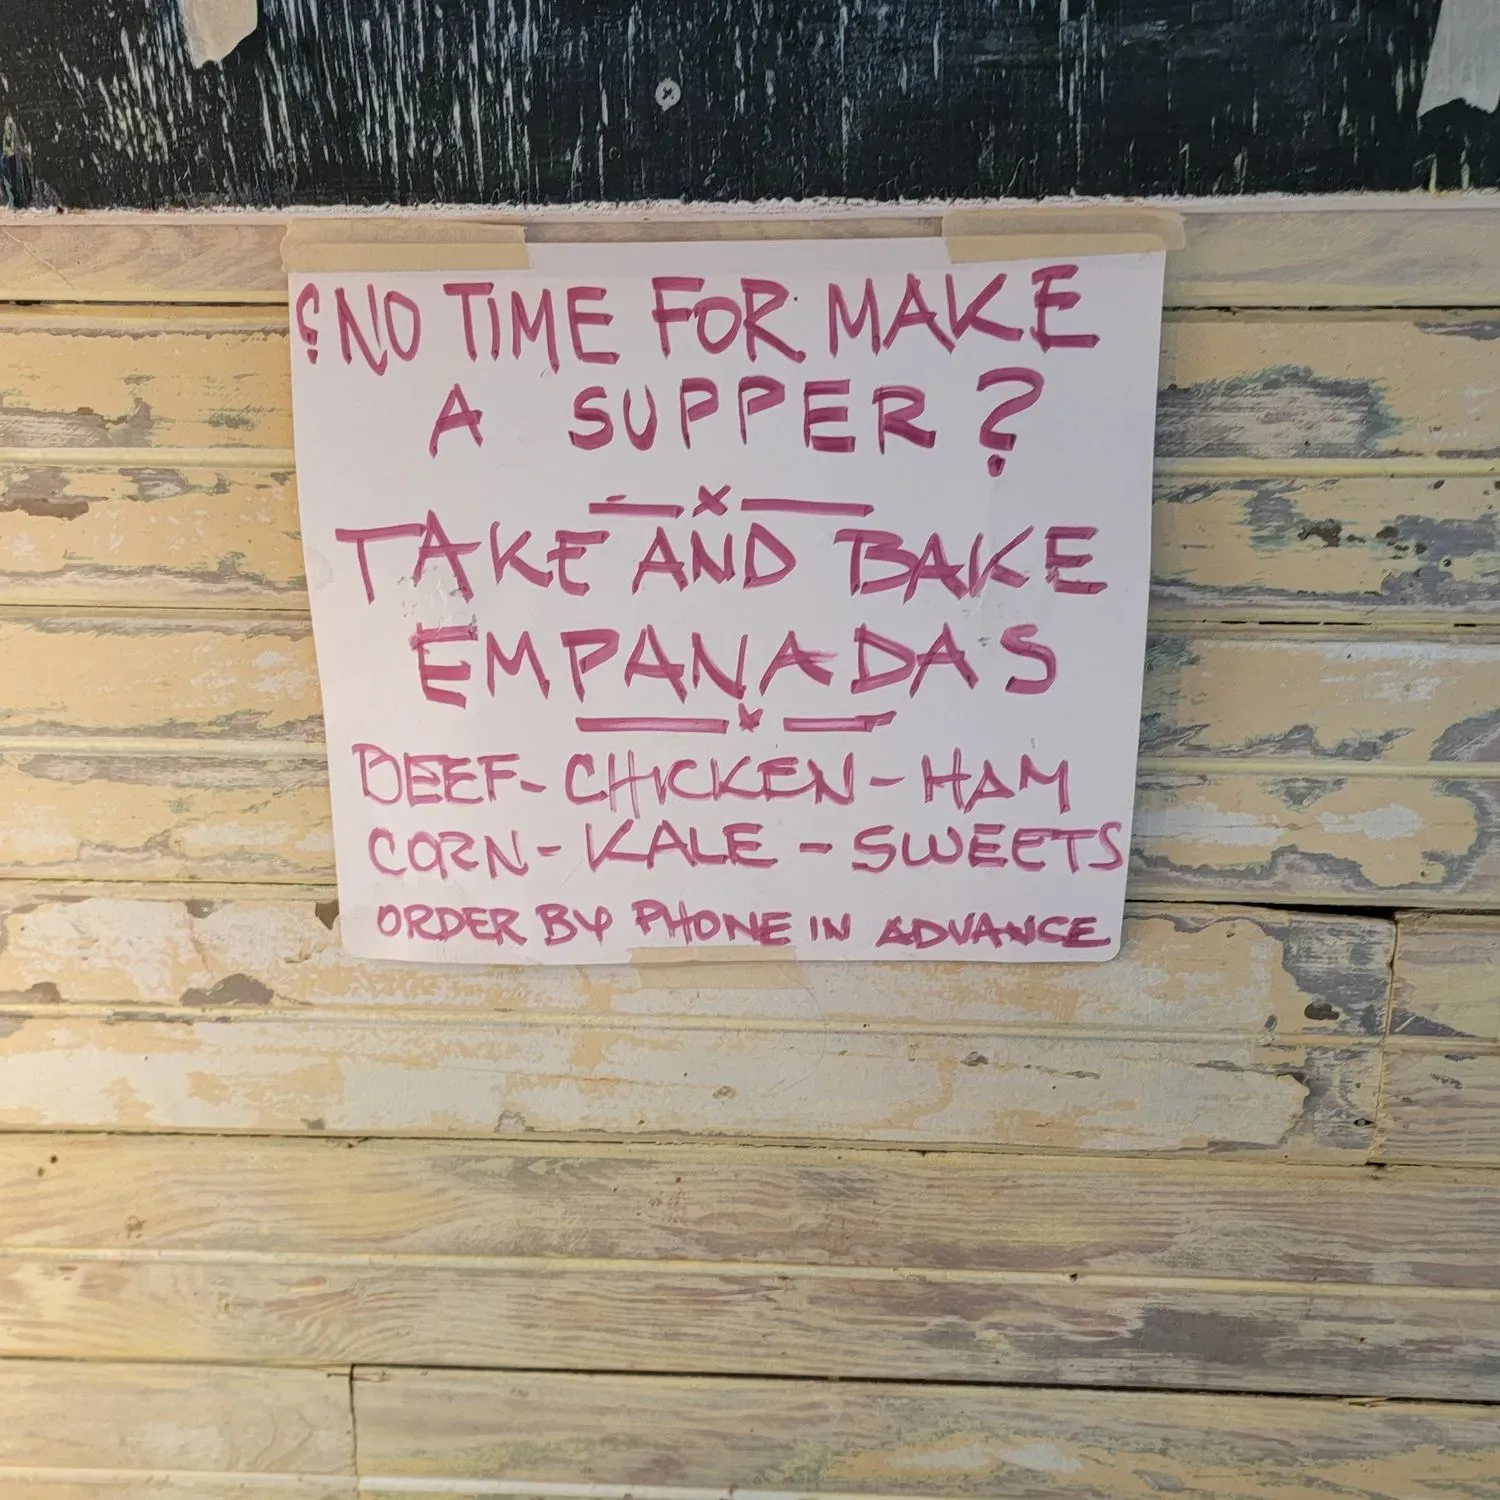 ¿NO TIME FOR MAKE
A SUPPER?
TAKE AND BAKE
EMPANADAS
BEEF - CHICKEN - HAM
CORN - KALE - SWEETS
ORDER BY PHONE IN ADVANCE